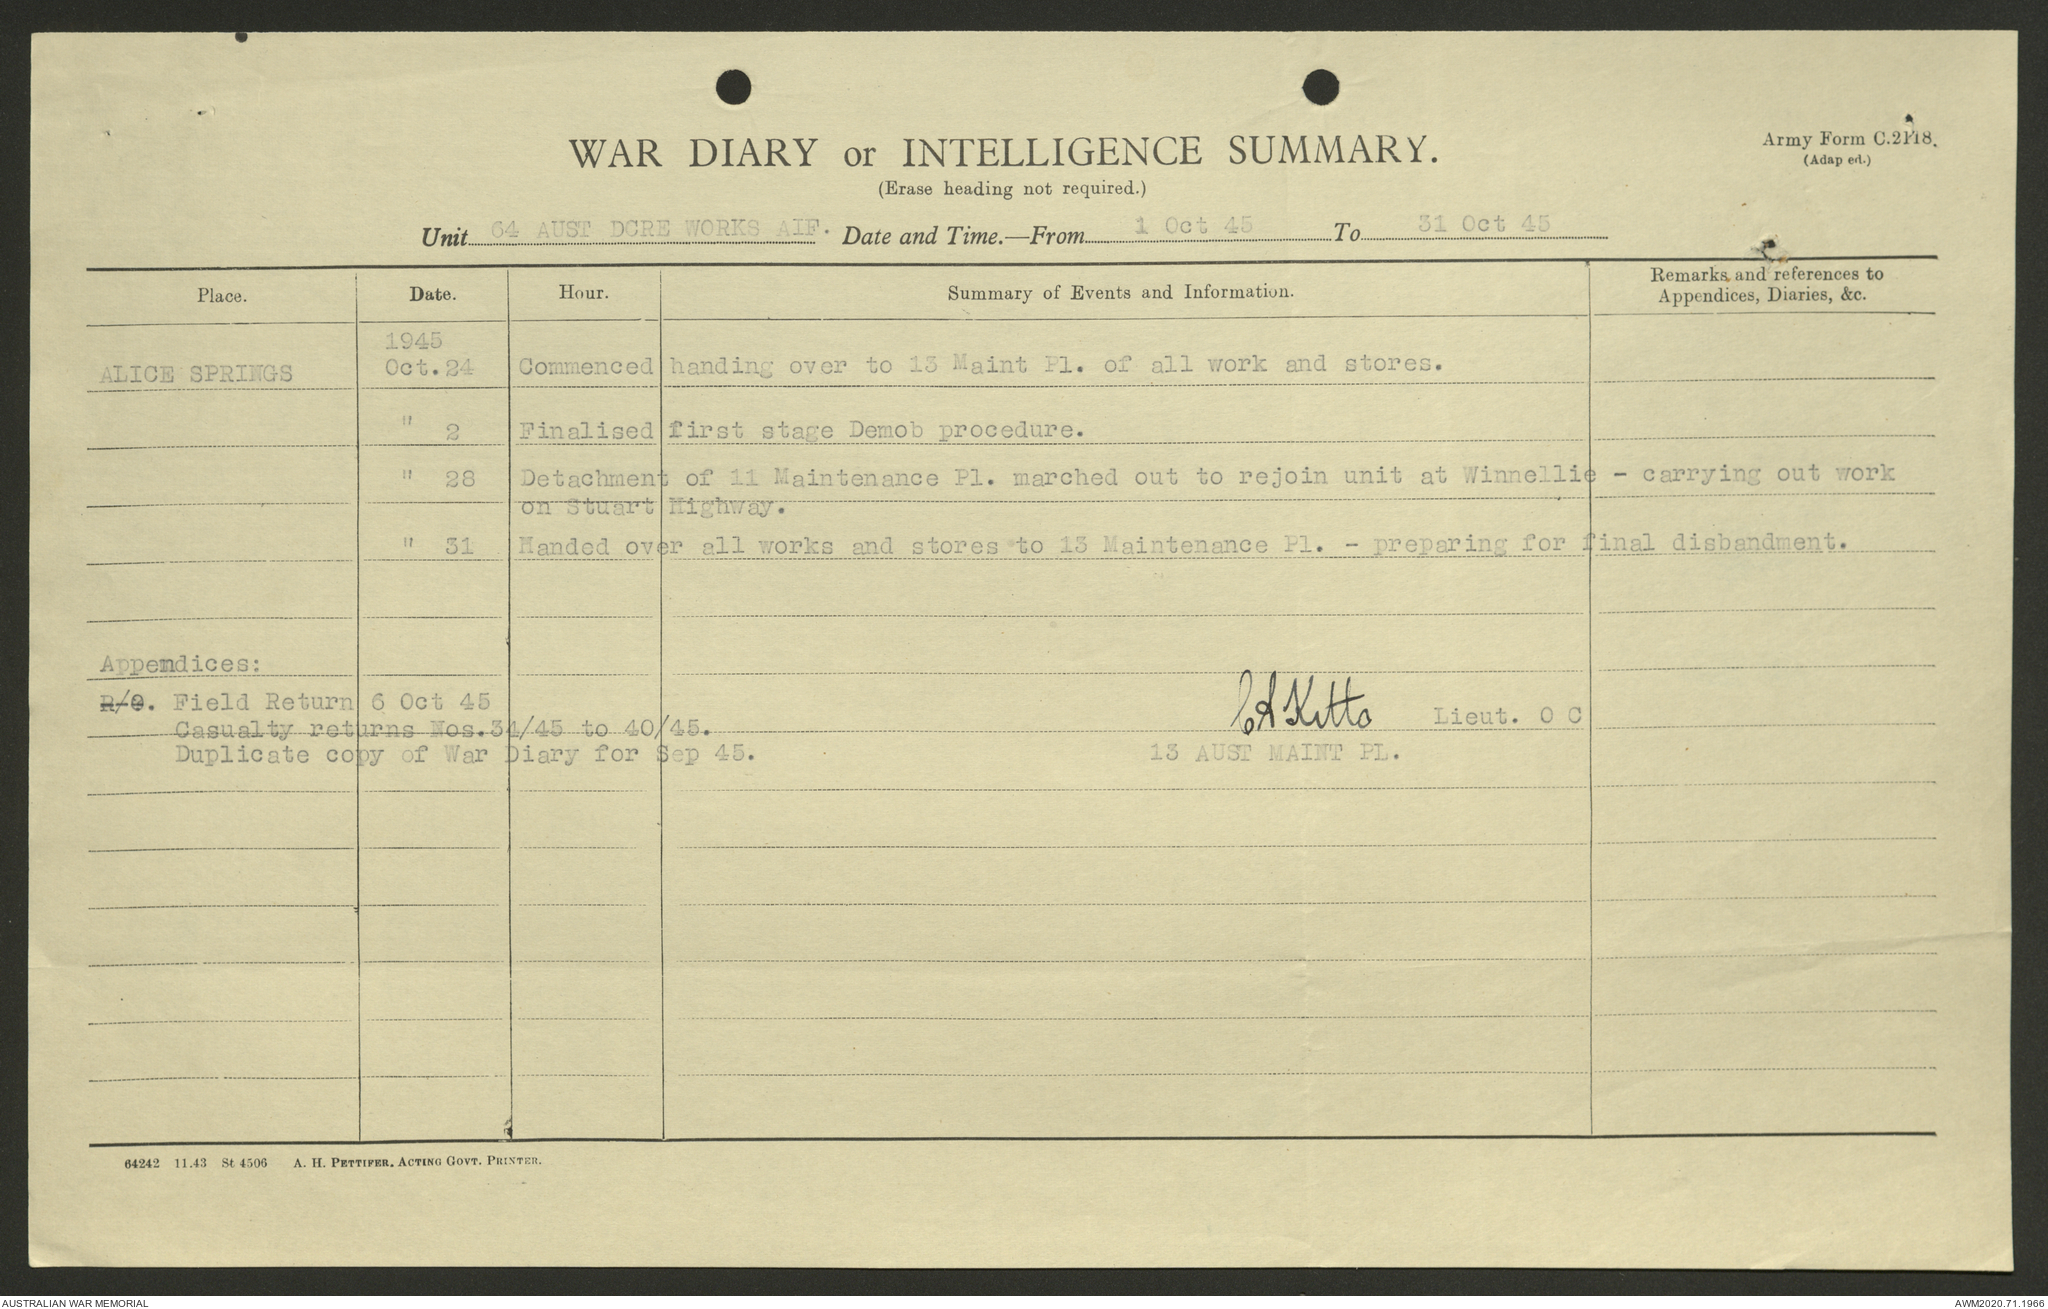 WAR DIARY or INTELLIGENCE SUMMARY.
Army Form C.2118.
(Adap ed.)
(Erase heading not required.)
Unit 64 AUST DCRE WORKS AIF. Date and Time.—From 1 Oct 45 To 31 Oct 45
Place. Date. Hour. Summary of Events and Information. Remarks and references to
Appendices, Diaries, &c.
1945
ALICE SPRINGS Oct.24 Commenced handing over to 13 Maint Pl. of all work and stores.
" 2 Finalised first stage Demob procedure.
" 28 Detachment of 11 Maintenance Pl. marched out to rejoin unit at Winnellie - carrying out work
on Stuart Highway.
" 31 Handed over all works and stores to 13 Maintenance Pl. - preparing for final disbandment.
Appendices:
R/O. Field Return 6 Oct 45
Casualty returns Nos.34/45 to 40/45.
Duplicate copy of War Diary for Sep 45.
CA Kitto Lieut. O C
13 AUST MAINT PL.
64242 11.43 St 4506 A. H. PETTIFER. ACTING GOVT. PRINTER.
AUSTRALIAN WAR MEMORIAL
AWM2020.71.1966